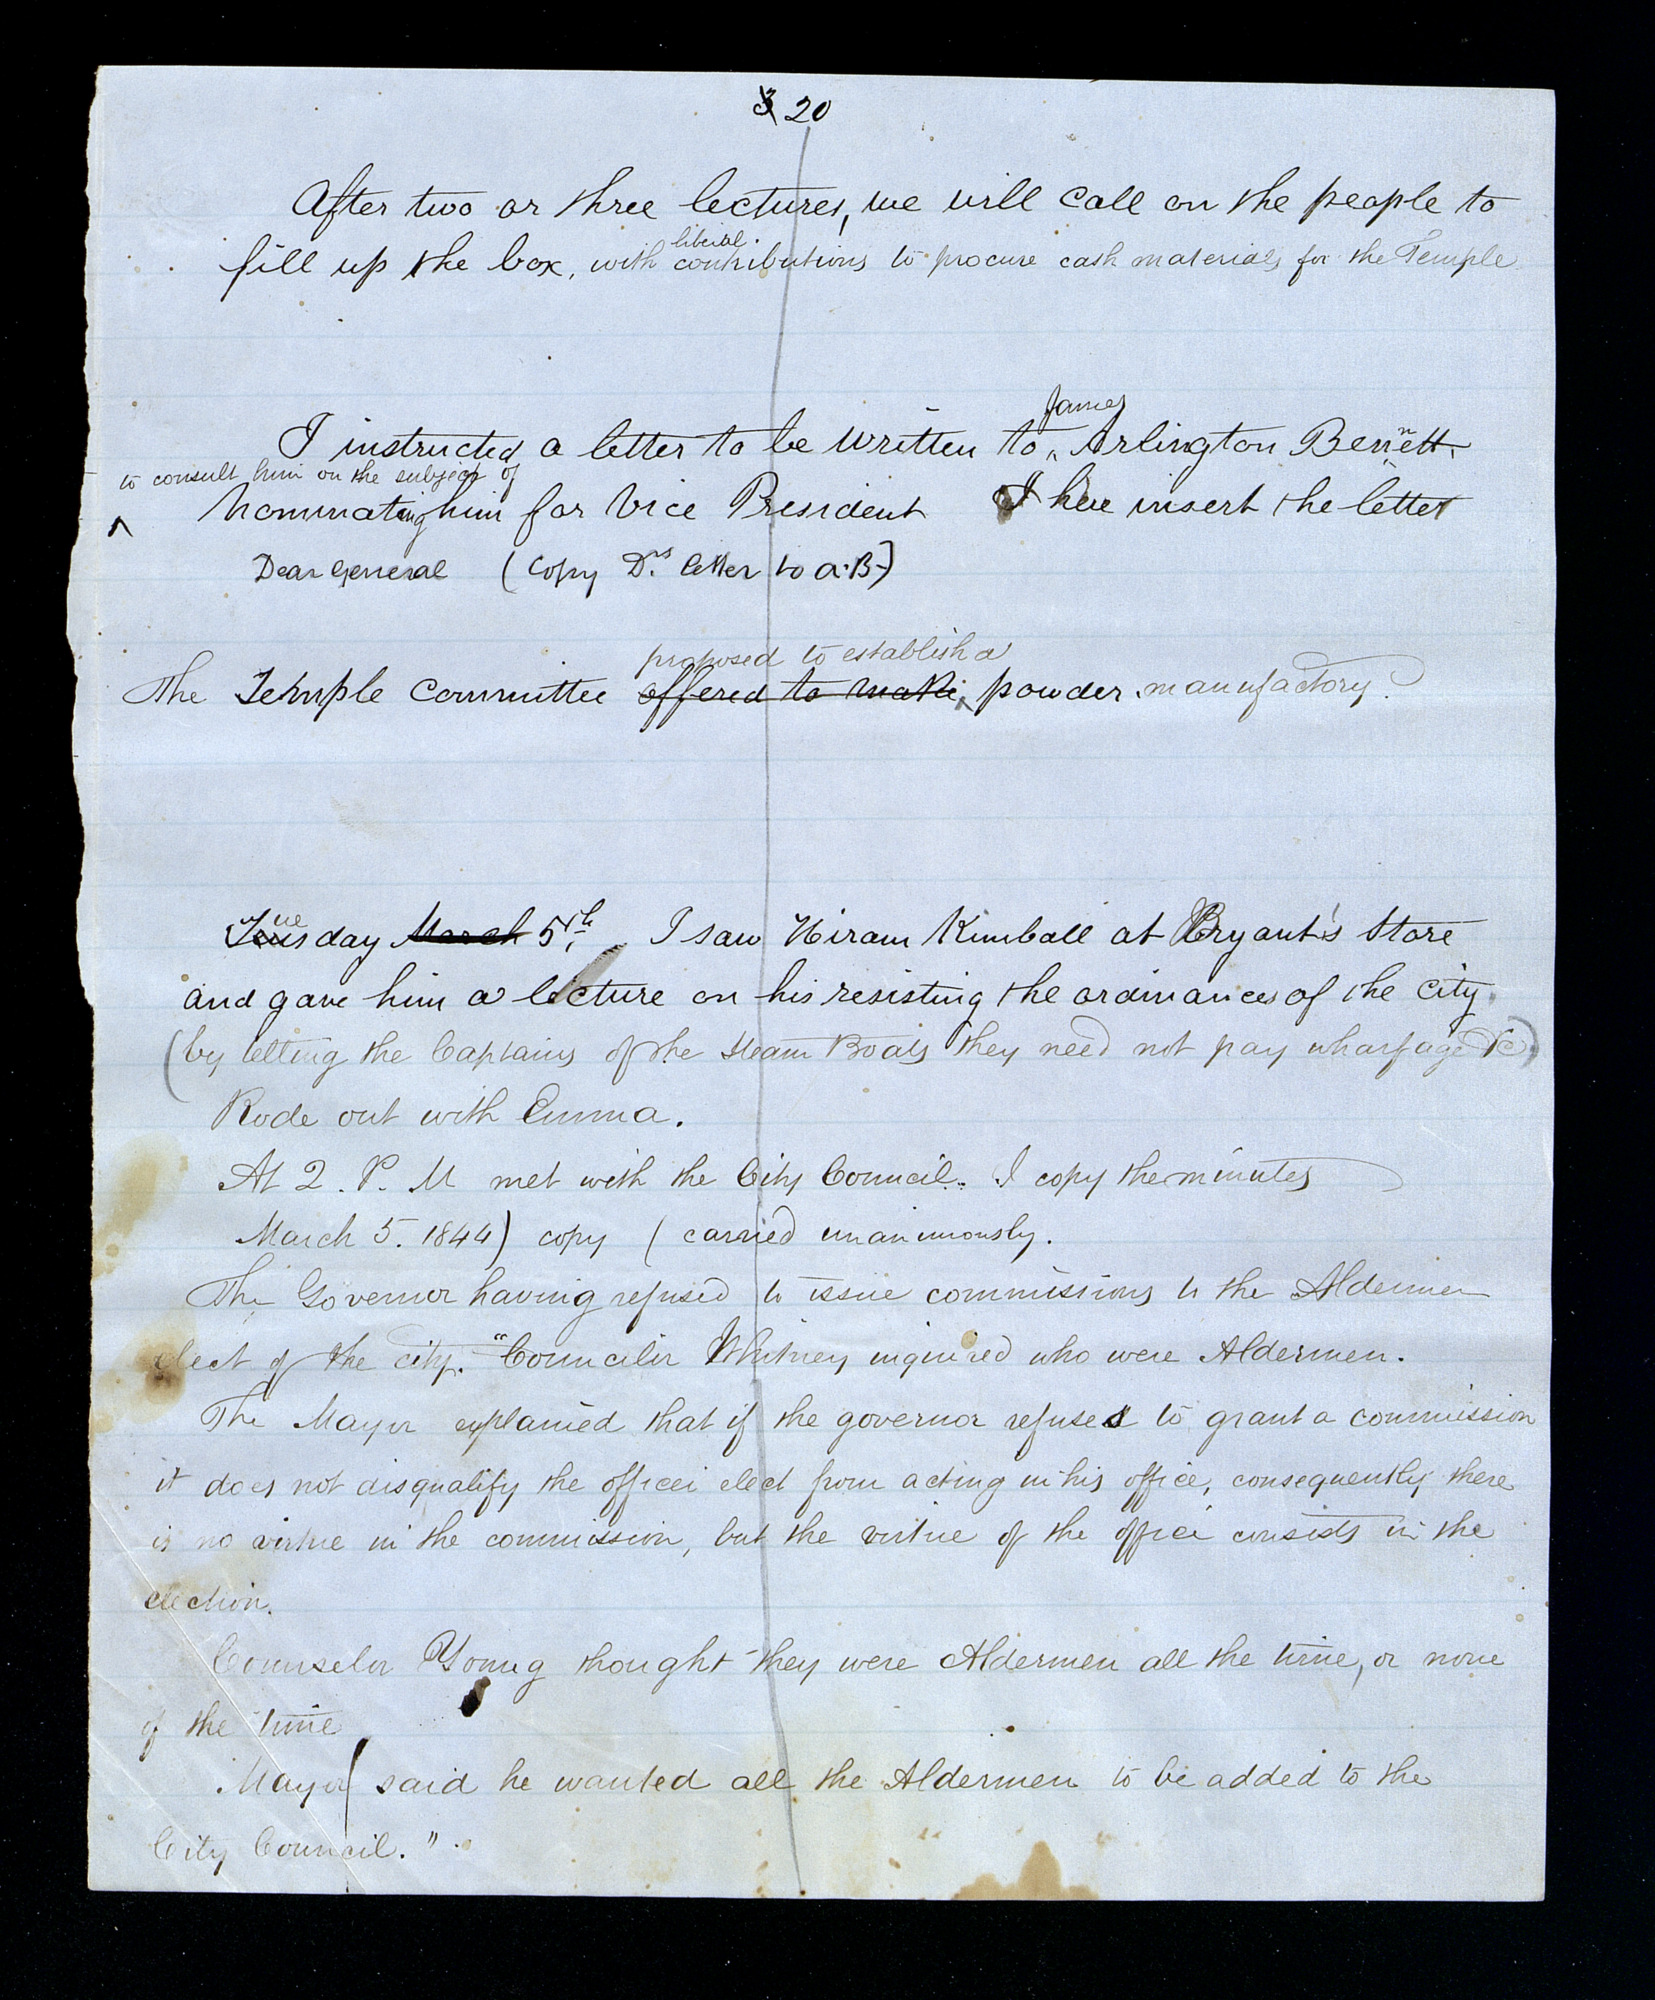 3 20
After two or three lectures, we will call on the people to
liberal.
fill up the box, with contributions to procure cash materials for the Temple
James
I instructed a letter to be written to ^ Arlington Bennett.
to consult him on the subject of
^ Nominating him for Vice President I here insert the letter
Dear General (Copy Drs letter to A.B-)
proposed to establish a
The Temple Committee offered to make ^ powder manufactory.
Tuesday March 5th, I saw Hiram Kimball at Bryant's Store
and gave him a lecture on his resisting the ordinances of the city.
(by letting the Captains of the Steam Boats they need not pay wharfage &c)
Rode out with Emma.
At 2. P. M met with the City Council. I copy the minutes
March 5. 1844) copy (carried unanimously.
The Governor having refused to issue commissions to the Aldermen
elect of the city. "Councilor Whitney inquired who were Aldermen.
The Mayor explained that if the governor refuses to grant a commission
it does not disqualify the officer elect from acting in his office, consequently there
is no virtue in the commission, but the virtue of the office consists in the
election.
Counselor Young thought they were Aldermen all the time, or none
of the time
Mayor said he wanted all the Aldermen to be added to the
City Council."